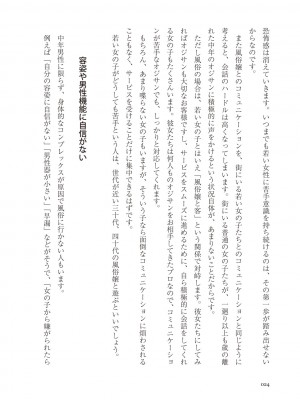 恐怖感は消えていきます。いつまでも若い女性に苦手意識を持ち続けるのは、その第一歩が踏み出せない
からなのです。
また風俗嬢とのコミュニケーションを、街にいる若い女の子たちとのコミュニケーションと同じように
考えると、会話のハードルは高くなってしまいます。街にいる普通の女の子たちが、二廻り以上も歳の離
れた中年のオジサンに積極的に声をかけるという状況自体が、あまりないことだからです。
ただし風俗の場合は、若い女の子とはいえ「風俗嬢と客」という関係で対峙します。彼女たちにしてみ
ればオジサンも大切なお客様ですし、サービスをスムーズに進めるために、自ら積極的に会話をしてくれ
る女の子もたくさんいます。彼女たちは何人ものオジサンをお相手してきたプロなので、コミュニケーショ
ンが苦手なオジサンでも、しっかりリードしてくれます。
もちろん、あまり喋らない女の子もいますが、そういう子なら面倒なコミュニケーションに煩わされる
こともなく、サービスを受けることだけに集中できるはずです。
若い女の子がどうしても苦手という人は、世代が近い三十代、四十代の風俗嬢と遊ぶといいでしょう。
容姿や男性機能に自信がない
中年男性に限らず、身体的なコンプレックスが原因で風俗に行かない人もいます。
例えば「自分の容姿に自信がない」「男性器が小さい」「早漏」などがそうで、「女の子から嫌がられたら
024